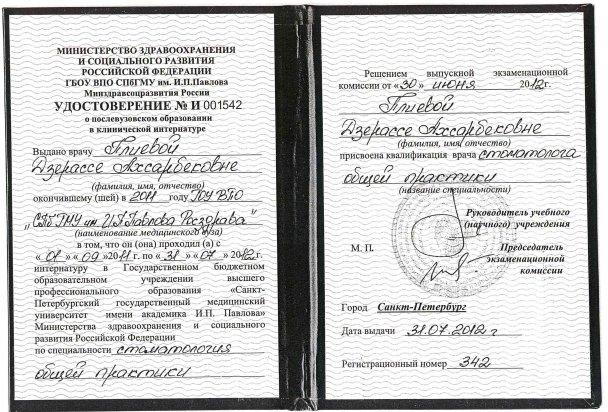 МИНИСТЕРСТВО ЗДРАВООХРАНЕНИЯ
И СОЦИАЛЬНОГО РАЗВИТИЯ
РОССИЙСКОЙ ФЕДЕРАЦИИ
ГБОУ ВПО СПбГМУ им. И.П.Павлова
Минздравсоцразвития России
УДОСТОВЕРЕНИЕ № И 001542
о послевузовском образовании
в клинической интернатуре
Выдано врачу Плиевой
Дзерассе Ахсарбековне
(фамилия, имя, отчество)
окончившему (шей) в 2011 году ГОУ ВПО
„СПб ГМУ им. И.П. Павлова Росздрава"
(наименование медицинского вуза)
в том, что он (она) проходил (а) с
«01» «09» 2011 г. по «31» «07» 2012 г.
интернатуру в Государственном бюджетном
образовательном учреждении высшего
профессионального образования «Санкт-
Петербургский государственный медицинский
университет имени академика И.П. Павлова»
Министерства здравоохранения и социального
развития Российской Федерации
по специальности стоматология
общей практики
Решением выпускной экзаменационной
комиссии от «30» июня 2012 г.
Плиевой
Дзерассе Ахсарбековне
(фамилия, имя, отчество)
присвоена квалификация врача стоматолога
общей практики
(название специальности)
Руководитель учебного
(научного) учреждения
М. П.
Председатель
экзаменационной
комиссии
Город Санкт-Петербург
Дата выдачи 31.07.2012г
Регистрационный номер 342